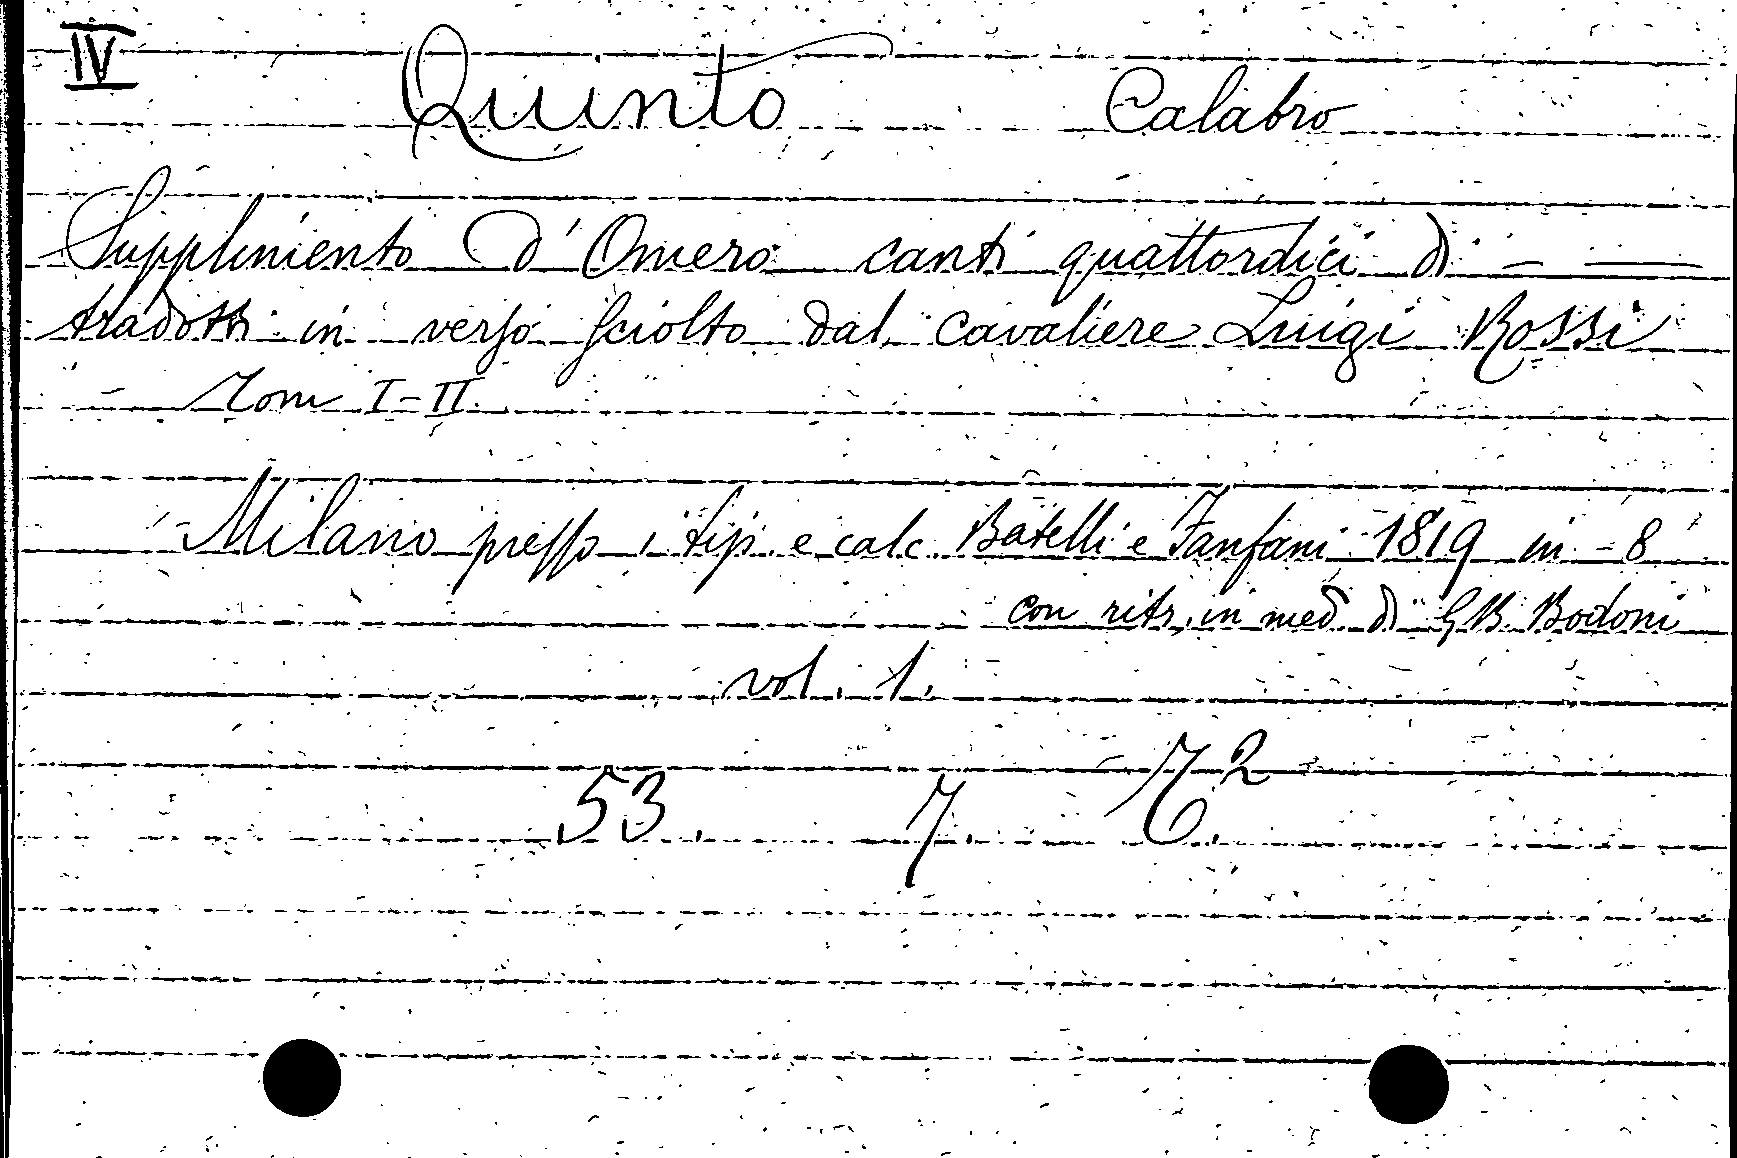 IV
Quinto Calabro
Supplimento d'Omero canti quattordici di — —
tradotti in verso sciolto dal cavaliere Luigi Rossi
— Tom I-II.
Milano presso i tip. e calc. Batelli e Fanfani 1819 in-8°
con ritr. in med. di G.B. Bodoni
vol. 1.
53. 7. C.²